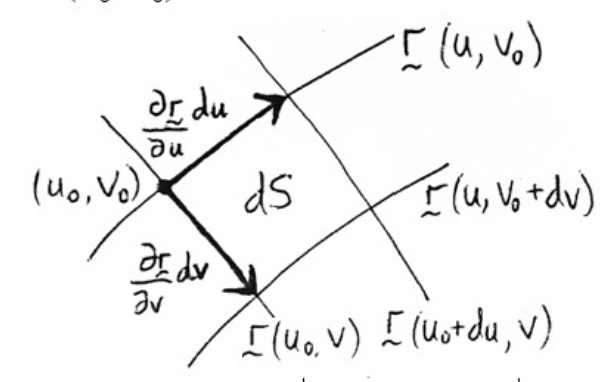 r̰ (u, v₀)
∂r̰/∂u du
(u₀, v₀)
dS
r̰(u, v₀+dv)
∂r̰/∂v dv
r̰(u₀, v) r̰(u₀+du, v)